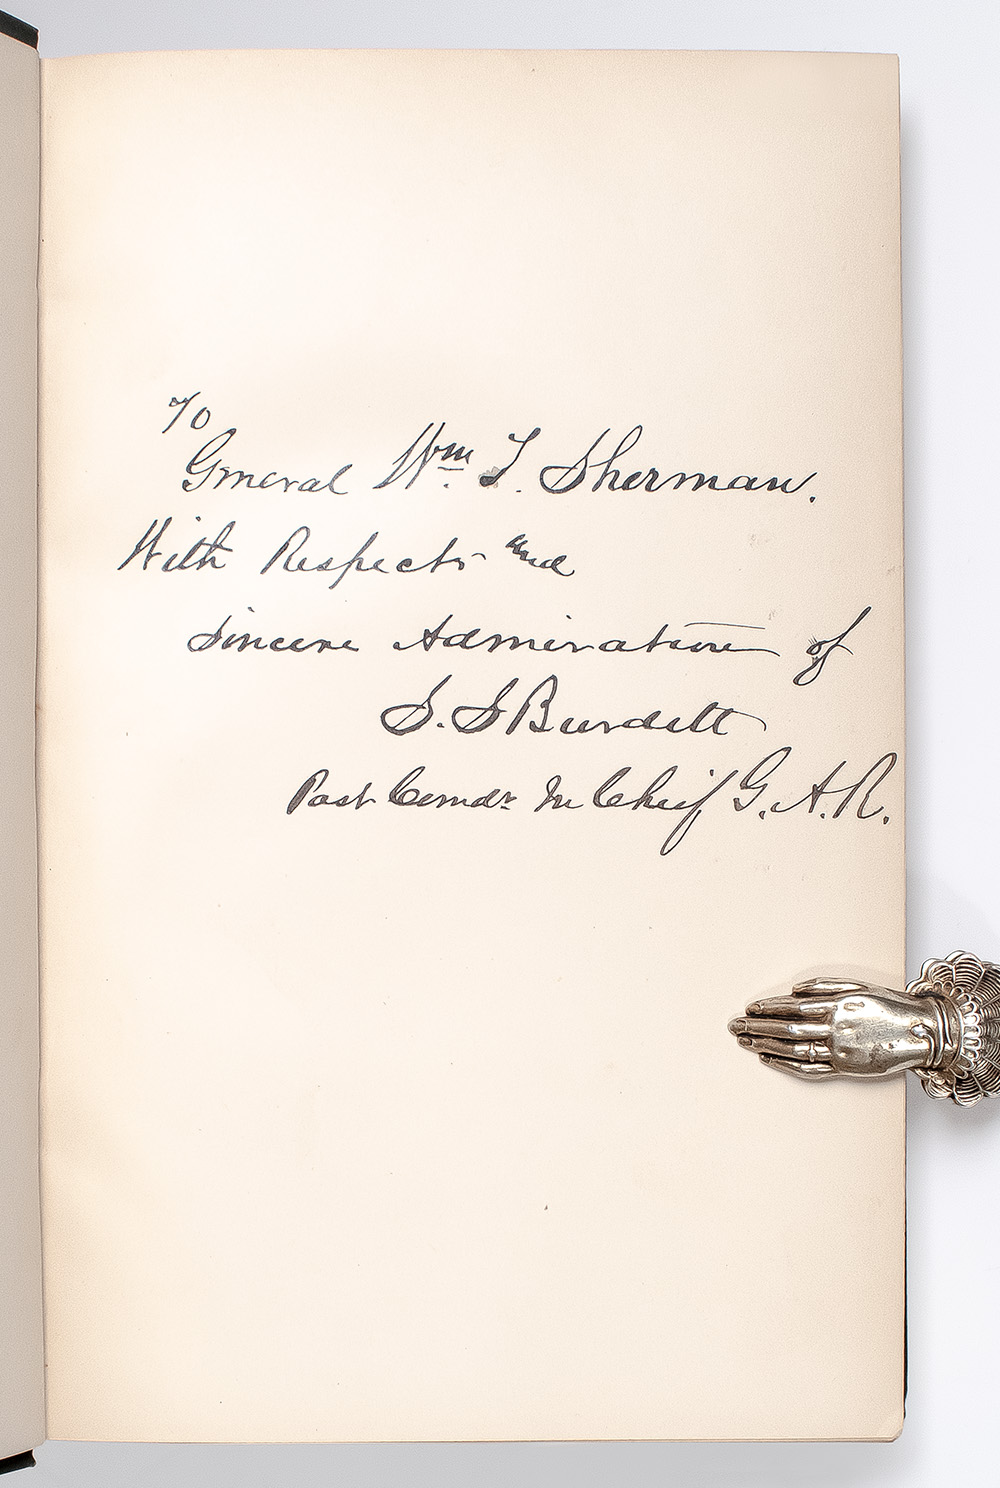 To
General Wm T. Sherman.
With Respects and
Sincere Admiration of
S. S Burdett
Past Comdr In Chief G. A. R.